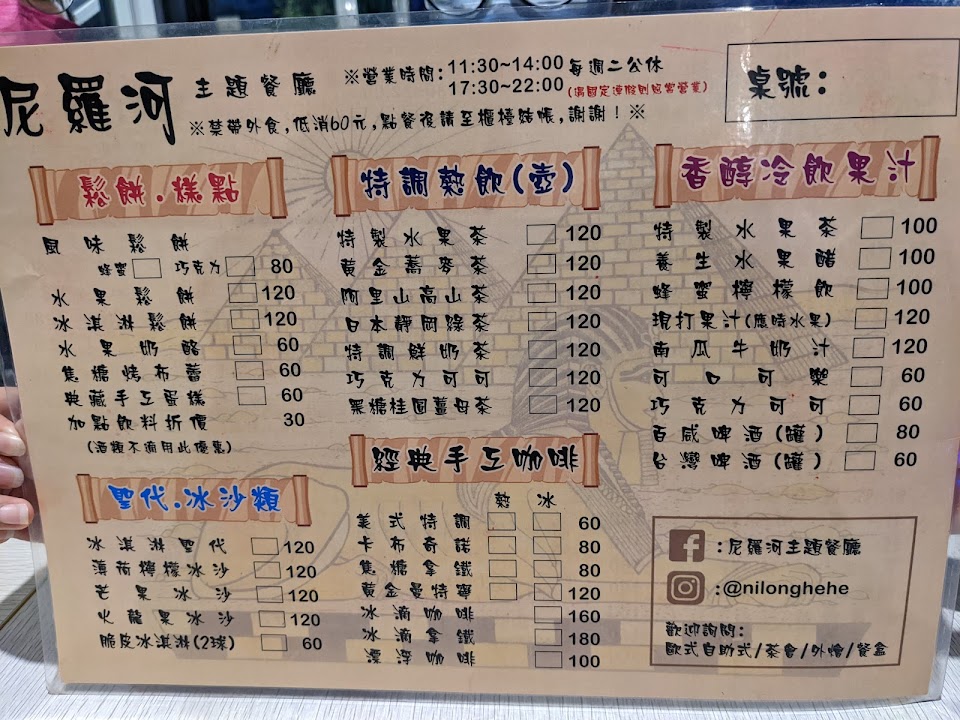 尼羅河 主題餐廳
※營業時間:11:30~14:00 每週二公休
17:30~22:00 (偶國定連假則照常營業)
※禁帶外食,低消60元,點餐後請至櫃檯結帳,謝謝!※
桌號:
鬆餅.糕點
風味鬆餅
蜂蜜□ 巧克力□ 80
水果鬆餅 □ 120
冰淇淋鬆餅 □ 120
水果奶酪 □ 60
焦糖烤布蕾 □ 60
典藏手工蛋糕 □ 60
加點飲料折價 30
(酒類不適用此優惠)
聖代.冰沙類
冰淇淋聖代 □ 120
薄荷檸檬冰沙 □ 120
芒果冰沙 □ 120
火龍果冰沙 □ 120
脆皮冰淇淋(2球) □ 60
特調熱飲(壺)
特製水果茶 □ 120
黃金蕎麥茶 □ 120
阿里山高山茶 □ 120
日本靜岡綠茶 □ 120
特調鮮奶茶 □ 120
巧克力可可 □ 120
黑糖桂圓薑母茶 □ 120
經典手工咖啡
熱 冰
美式特調 □ □ 60
卡布奇諾 □ □ 80
焦糖拿鐵 □ □ 80
黃金曼特寧 □ □ 120
冰滴咖啡 □ 160
冰滴拿鐵 □ 180
漂浮咖啡 □ 100
香醇冷飲果汁
特製水果茶 □ 100
養生水果醋 □ 100
蜂蜜檸檬飲 □ 100
現打果汁(應時水果) □ 120
南瓜牛奶汁 □ 120
可口可樂 □ 60
巧克力可可 □ 60
百威啤酒(罐) □ 80
台灣啤酒(罐) □ 60
:尼羅河主題餐廳
:@nilonghehe
歡迎詢問:
歐式自助式/茶會/外燴/餐盒